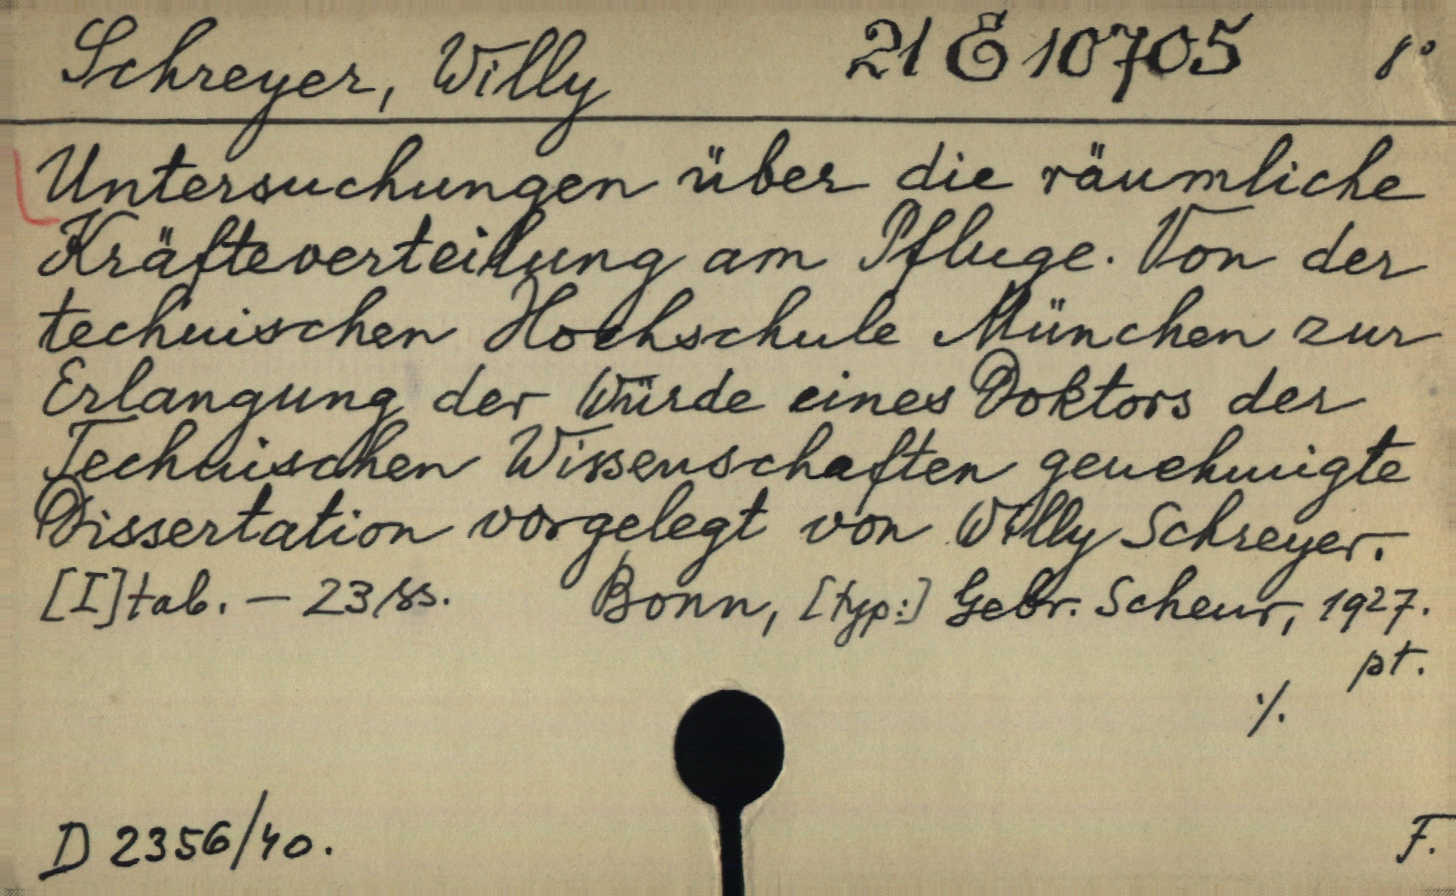 Schreyer, Willy 21 E 10705 8°
Untersuchungen über die räumliche
Kräfteverteilung am Pfluge. Von der
technischen Hochschule München zur
Erlangung der Würde eines Doktors der
Technischen Wissenschaften genehmigte
Dissertation vorgelegt von Willy Schreyer.
[I] tab. — 23 ss. Bonn, [typ:] Gebr. Scheur, 1927.
pt.
./.
D 2356/40. F.